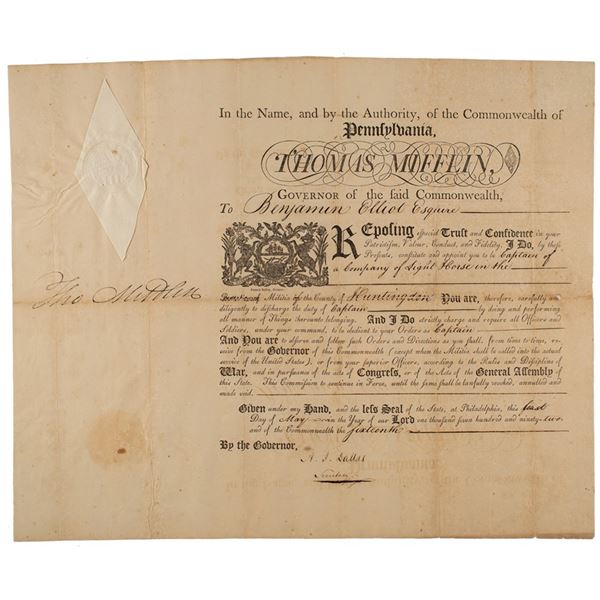 In the Name, and by the Authority, of the Commonwealth of
Pennſylvania,
THOMAS MIFFLIN,
GOVERNOR of the ſaid Commonwealth,
To Benjamin Elliot Esquire
REpoſing eſpecial Truſt and Confidence in your
Patriotiſm, Valour, Conduct, and Fidelity, I Do, by theſe
Preſents, conſtitute and appoint you to be Captain of
a Company of Light Horse in the
Tho Mifflin
Militia of the County of Huntingdon You are, therefore, carefully and
diligently to diſcharge the duty of Captain by doing and performing
all manner of Things thereunto belonging. And I Do ſtrictly charge and require all Officers and
Soldiers, under your command, to be obedient to your Orders as Captain
And You are to obſerve and follow ſuch Orders and Directions as you ſhall, from time to time, re-
ceive from the Governor of this Commonwealth (except when the Militia ſhall be called into the actual
ſervice of the United States), or from your ſuperior Officers, according to the Rules and Diſcipline of
War, and in purſuance of the acts of Congreſs, or of the Acts of the General Aſſembly of
this State. This Commiſſion to continue in Force, until the ſame ſhall be lawfully revoked, annulled and
made void.
Given under my Hand, and the leſs Seal of the State, at Philadelphia, this first
Day of May in the Year of our Lord one thouſand ſeven hundred and ninety-two
and of the Commonwealth the sixteenth
By the Governor,
A. J. Dallas
Secretary